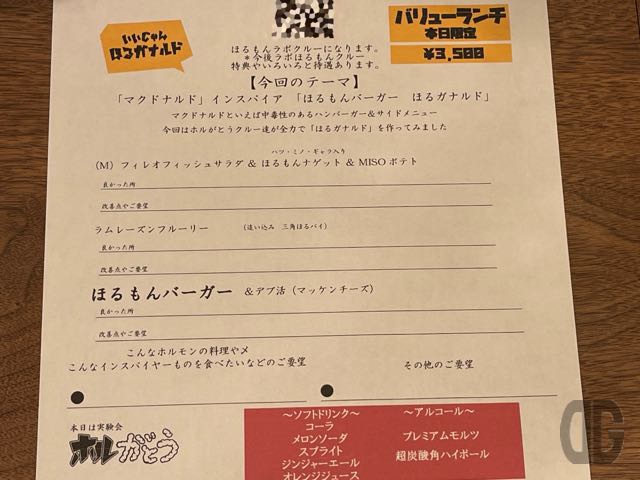 いいじゃん
ほるガナルド
ほるもんラボクルーになります。
*今後ラボほるもんクルー
特典やいろいろと待遇あります。
バリューランチ
本日限定
¥3,500
【今回のテーマ】
「マクドナルド」インスパイア 「ほるもんバーガー ほるガナルド」
マクドナルドといえば中毒性のあるハンバーガー&サイドメニュー
今回はホルがとうクルー達が全力で「ほるガナルド」を作ってみました
ハツ・ミノ・ギャラ入り
(M) フィレオフィッシュサラダ & ほるもんナゲット & MISO ポテト
良かった所
改善点やご要望
ラムレーズンフルーリー (追い込み 三角ほるパイ)
良かった所
改善点やご要望
ほるもんバーガー &デブ活 (マッケンチーズ)
良かった所
改善点やご要望
こんなホルモンの料理やメ
こんなインスパイヤーものを食べたいなどのご要望
その他のご要望
本日は実験会
ホルがとう
〜ソフトドリンク〜
コーラ
メロンソーダ
スプライト
ジンジャーエール
オレンジジュース
〜アルコール〜
プレミアムモルツ
超炭酸角ハイボール
DG